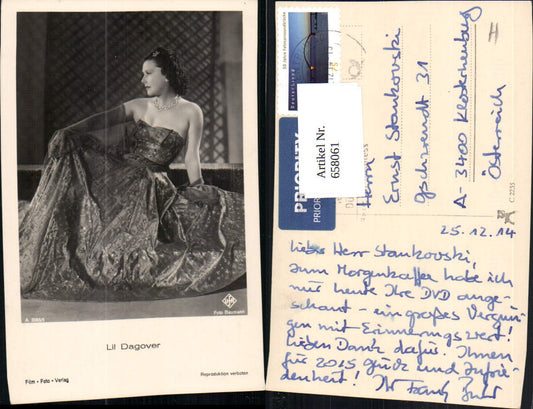 A 3393/1
Ufa
Foto Baumann
Lil Dagover
Film-Foto-Verlag
Reproduktion verboten
Deutschland
PRIORITY
PRIOR
Artikel Nr.
658061
Herrn
Ernst Stankovski
Gschwendt 31
A-3400 Klosterneuburg
Österreich
II
C 2235
25.12.14
Liebe Herr Stankovski,
zum Morgenkaffee habe ich
mir heute Ihre DVD ange-
schaut - ein großes Vergnü-
gen mit Erinnerungswert!
Lieben Dank dafür. Ihnen
für 2015 Glück und Zufrie-
denheit! Ihr